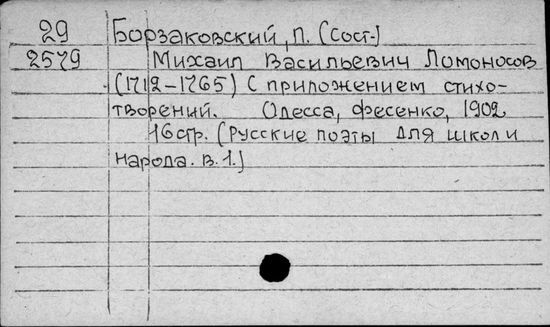 29 Борзаковский, П. (Сост.)
2579 Михаил Васильевич Ломоносов
(1712-1765) С приложением стихо-
творений. Одесса, Фесенко, 1902
16 стр. (Русские поэты для школ и
народа. В. 1.)